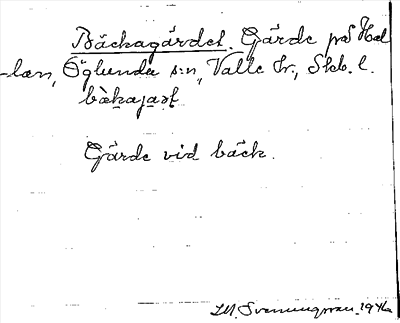 Bäckagärdet. Gärde på Hal
-len, Öglunda s:n, Valle hr., Skb. l.
Gärde vid bäck.
M. Svenningsson 1946